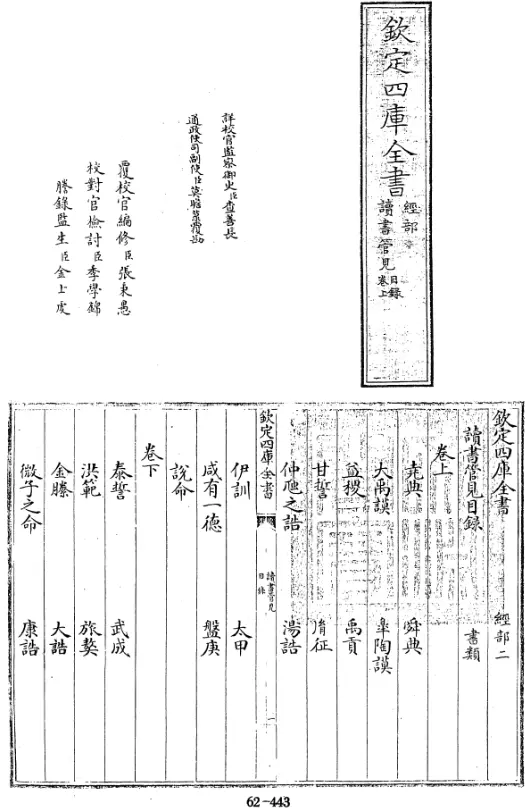 欽定四庫全書
經部
讀書管見
目錄
卷上
詳校官監察御史臣查善長
通政使司副使臣莫瞻菉覆勘
覆校官編修臣張秉愚
校對官檢討臣季學錦
謄錄監生臣金上虔
欽定四庫全書 經部二
讀書管見目錄 書類
卷上
堯典 舜典
大禹謨 皋陶謨
益稷 禹貢
甘誓 𦙍征
仲虺之誥 湯誥
欽定四庫全書
讀書管見
目錄
一
伊訓 太甲
咸有一德 盤庚
說命
卷下
泰誓 武成
洪範 旅獒
金縢 大誥
微子之命 康誥
62-443